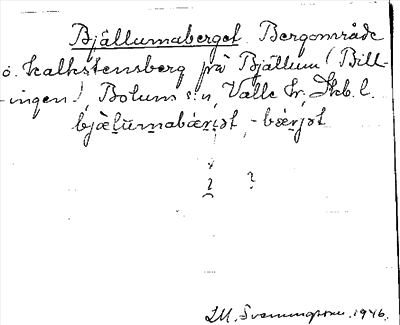 Bjällumaberget. Bergområde
o. kalkstensberg på Bjällum (Bill-
ingen), Bolums: n, Valle hr, Skb. l.
bjæļu̇mabæ̀rjət, -bærjət
? ?
J.M. Svenningsson. 1946.